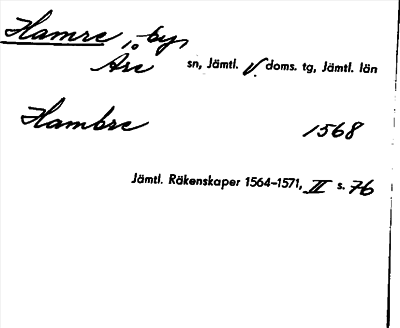 Hamre, by,
Åre sn, Jämtl. V. doms. tg, Jämtl. län
Hambre 1568
Jämtl. Räkenskaper 1564–1571, II s. 76